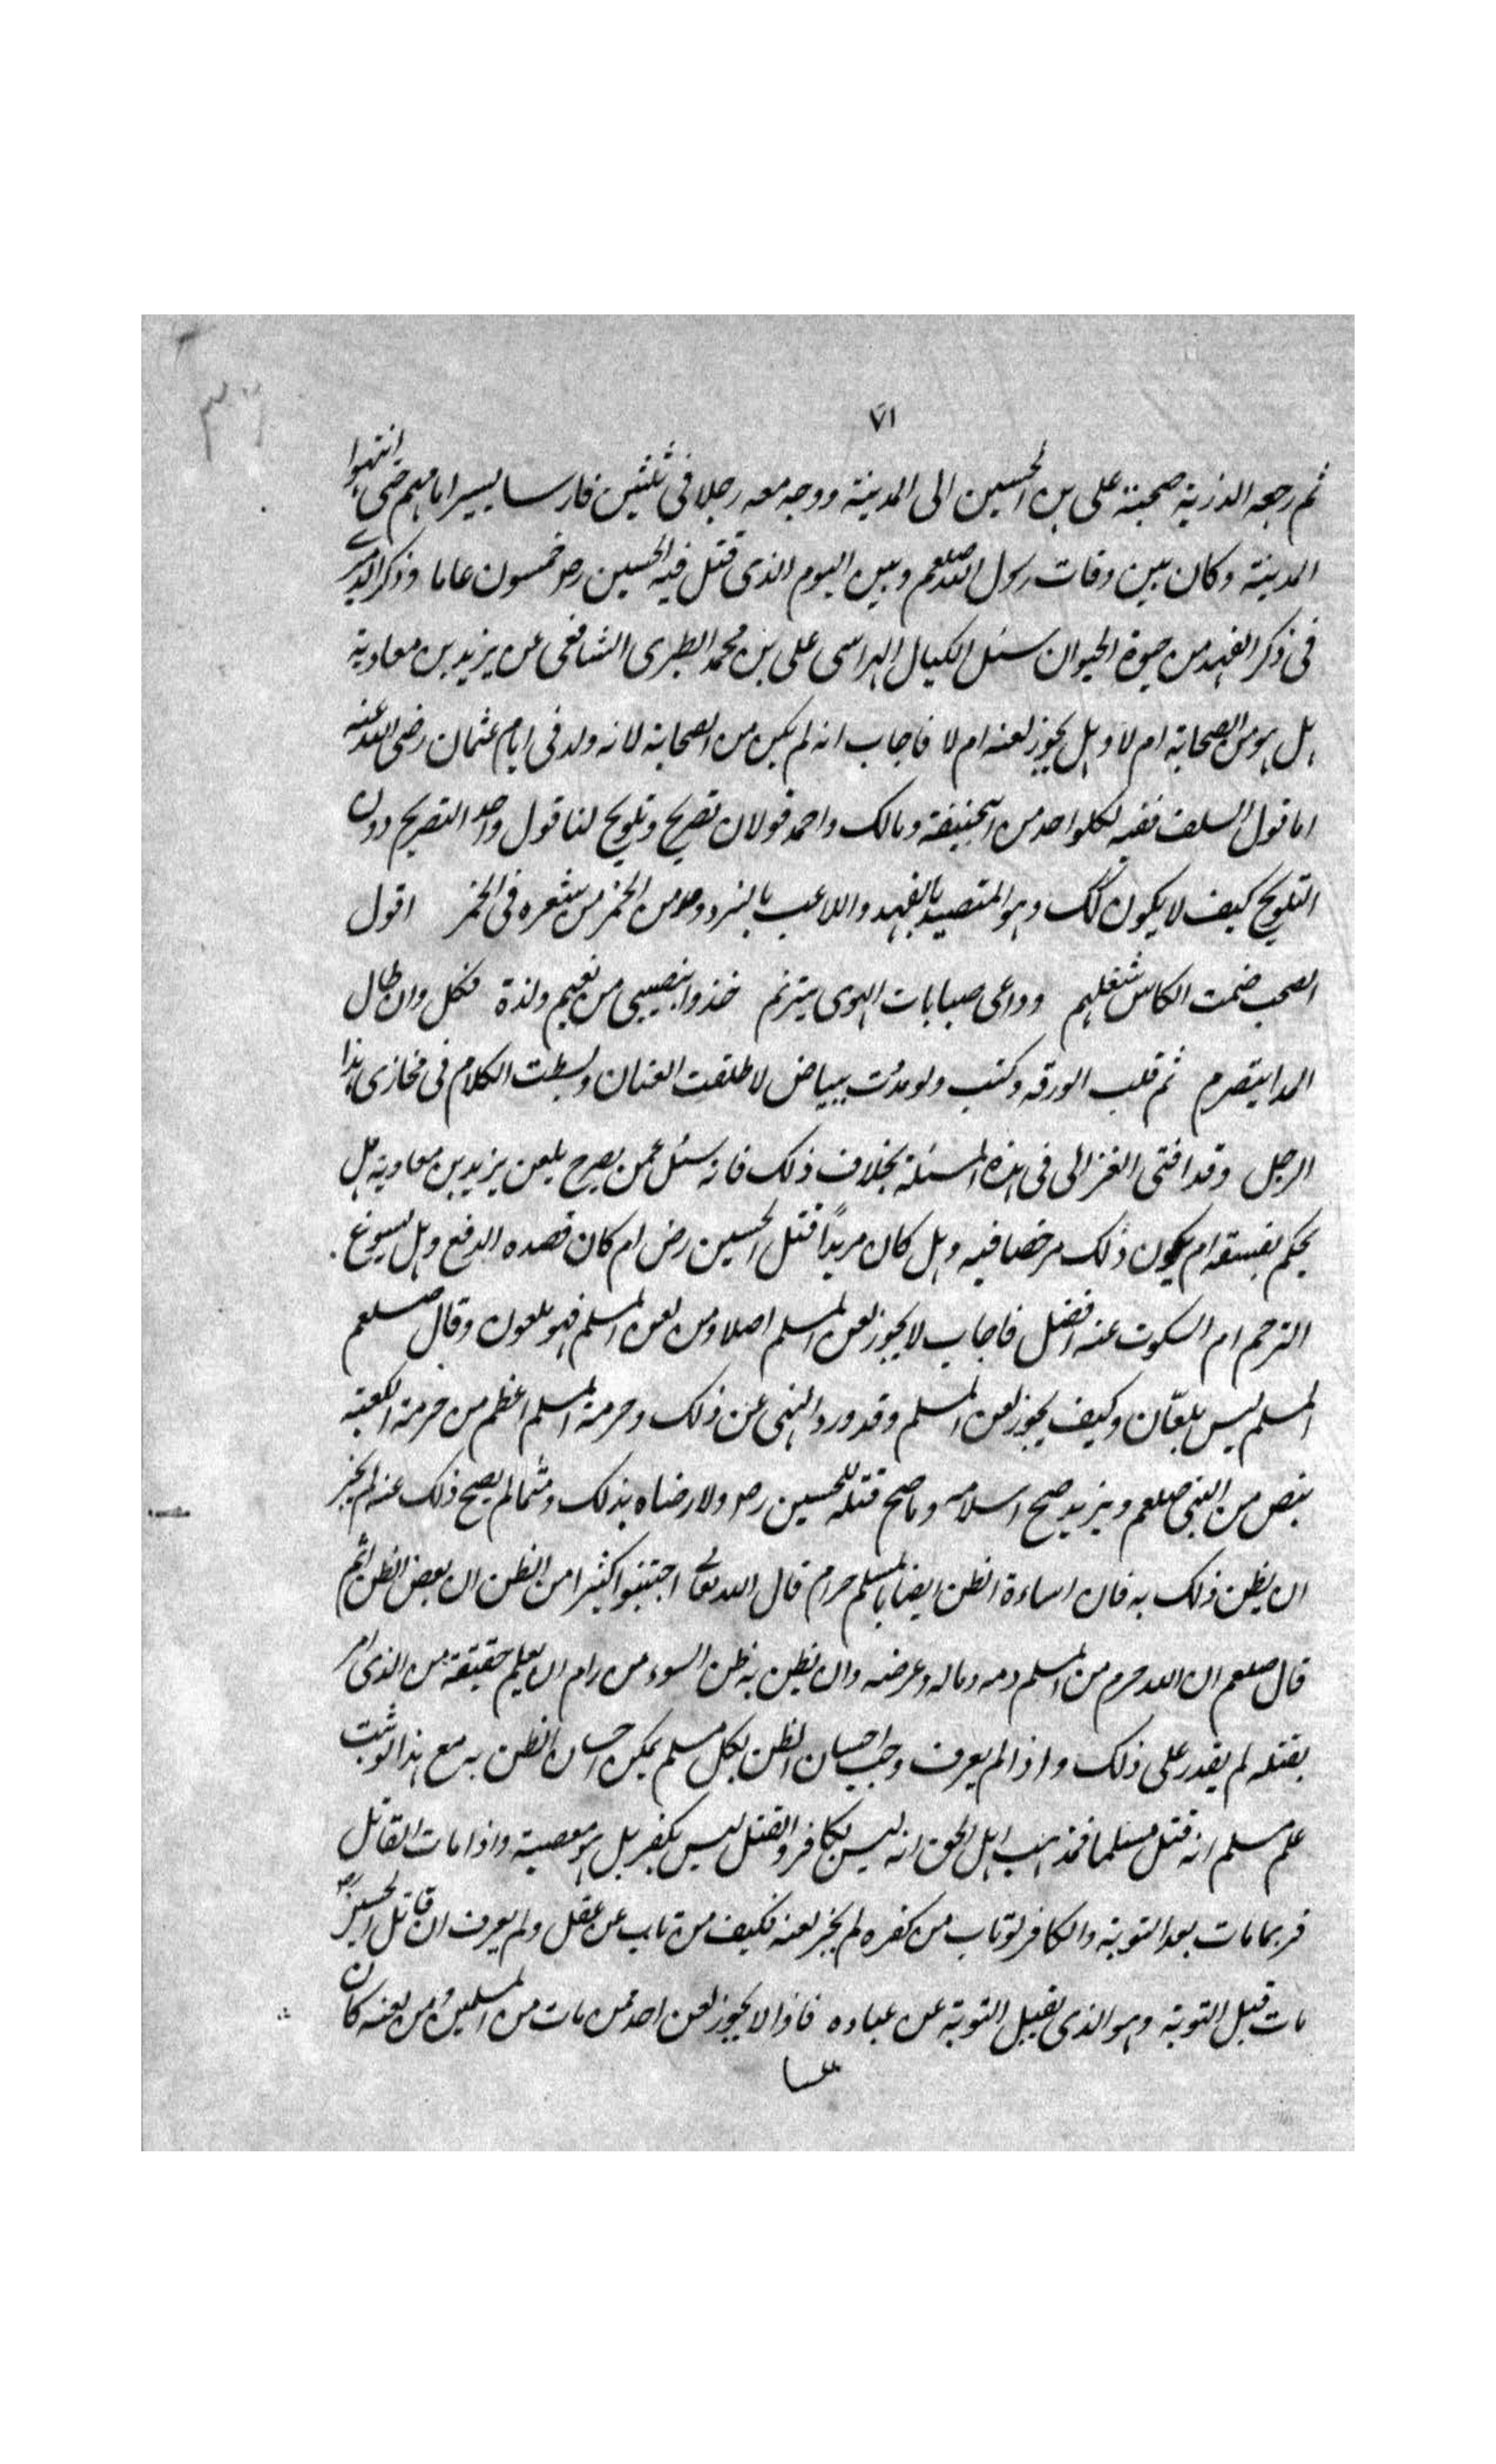 ٧١
ثم رجعه الذرية صحبة على بن الحسين الى المدينة ووجه معه رجلا فى ثلثين فارسا يسير امامهم حتى انتهوا
المدينة وكان بين وفات رسول الله صلعم وبين اليوم الذى قتل فيه الحسين رض خمسون عاما وذكر الدميرى
فى ذكر الفهد من حيوة الحيوان سئل الكيال الهراسى على بن محمد الطبرى الشافعى عن يزيد بن معاوية
هل هو من الصحابة ام لا وهل يجوز لعنه ام لا فاجاب انه لم يكن من الصحابة لانه ولد فى ايام عثمان رضى الله عنه
اما قول السلف ففيه لكلواحد من ابيحنيفة ومالك واحمد قولان تصريح وتلويح لنا قول واحد التصريح دون
التلويح كيف لا يكون كك وهو المتصيد بالفهد واللاعب بالنرد ومدمن الخمر من شعره فى الخمر اقول
لصحب ضمت الكاس شملهم وداعى صبابات الهوى يترنم خذوا بنصيبى من نعيم ولذة فكل وان طال
المدا يتصرم ثم قلب الورقه وكتب ولو مددت ببياض لاطلقت العنان وبسطت الكلام فى مخازى هذا
الرجل وقد افتى الغزالى فى هذه المسئلة بخلاف ذلك فانه سئل عمن يصرح بلعن يزيد بن معاوية هل
يحكم بفسقه ام يكون ذلك مرخصا فيه وهل كان مريدًا قتل الحسين رض ام كان قصده الدفع وهل يسوغ
الترحم ام السكوت عنه افضل فاجاب لا يجوز لعن المسلم اصلا ومن لعن المسلم فهو ملعون وقال صلعم
المسلم ليس بلعّان وكيف يجوز لعن المسلم وقد ورد النهى عن ذلك وحرمة المسلم اعظم من حرمة الكعبة
بنص من النبى صلعم ويزيد صح اسلامه وما صح قتله للحسين رض ولا رضاه بذلك ومتمالم يصح ذلك عنه لم يجز
ان يظن ذلك به فان اساءة الظن ايضا بالمسلم حرام قال الله تعالى اجتنبوا كثيرا من الظن ان بعض الظن اثم
قال صلعم ان الله حرم من المسلم دمه وماله وعرضه وان يظن به ظن السوء من رام ان يعلم حقيقة من الذى امر
بقتله لم يقدر على ذلك واذا لم يعرف وجب احسان الظن بكل مسلم يمكن احسان الظن به مع هذا لو ثبت
علم مسلم انه قتل مسلما فمذهب اهل الحق انه ليس بكافر والقتل ليس بكفر بل هو معصية واذا مات القاتل
فربما مات بعد التوبة والكافر لو تاب من كفره لم يجز لعنه فكيف من تاب عن عقل ولم يعرف ان قاتل الحسين رض
مات قبل التوبة وهو الذى يقبل التوبة عن عباده فاذا لا يجوز لعن احد ممن مات من المسلمين ومن لعنه كان